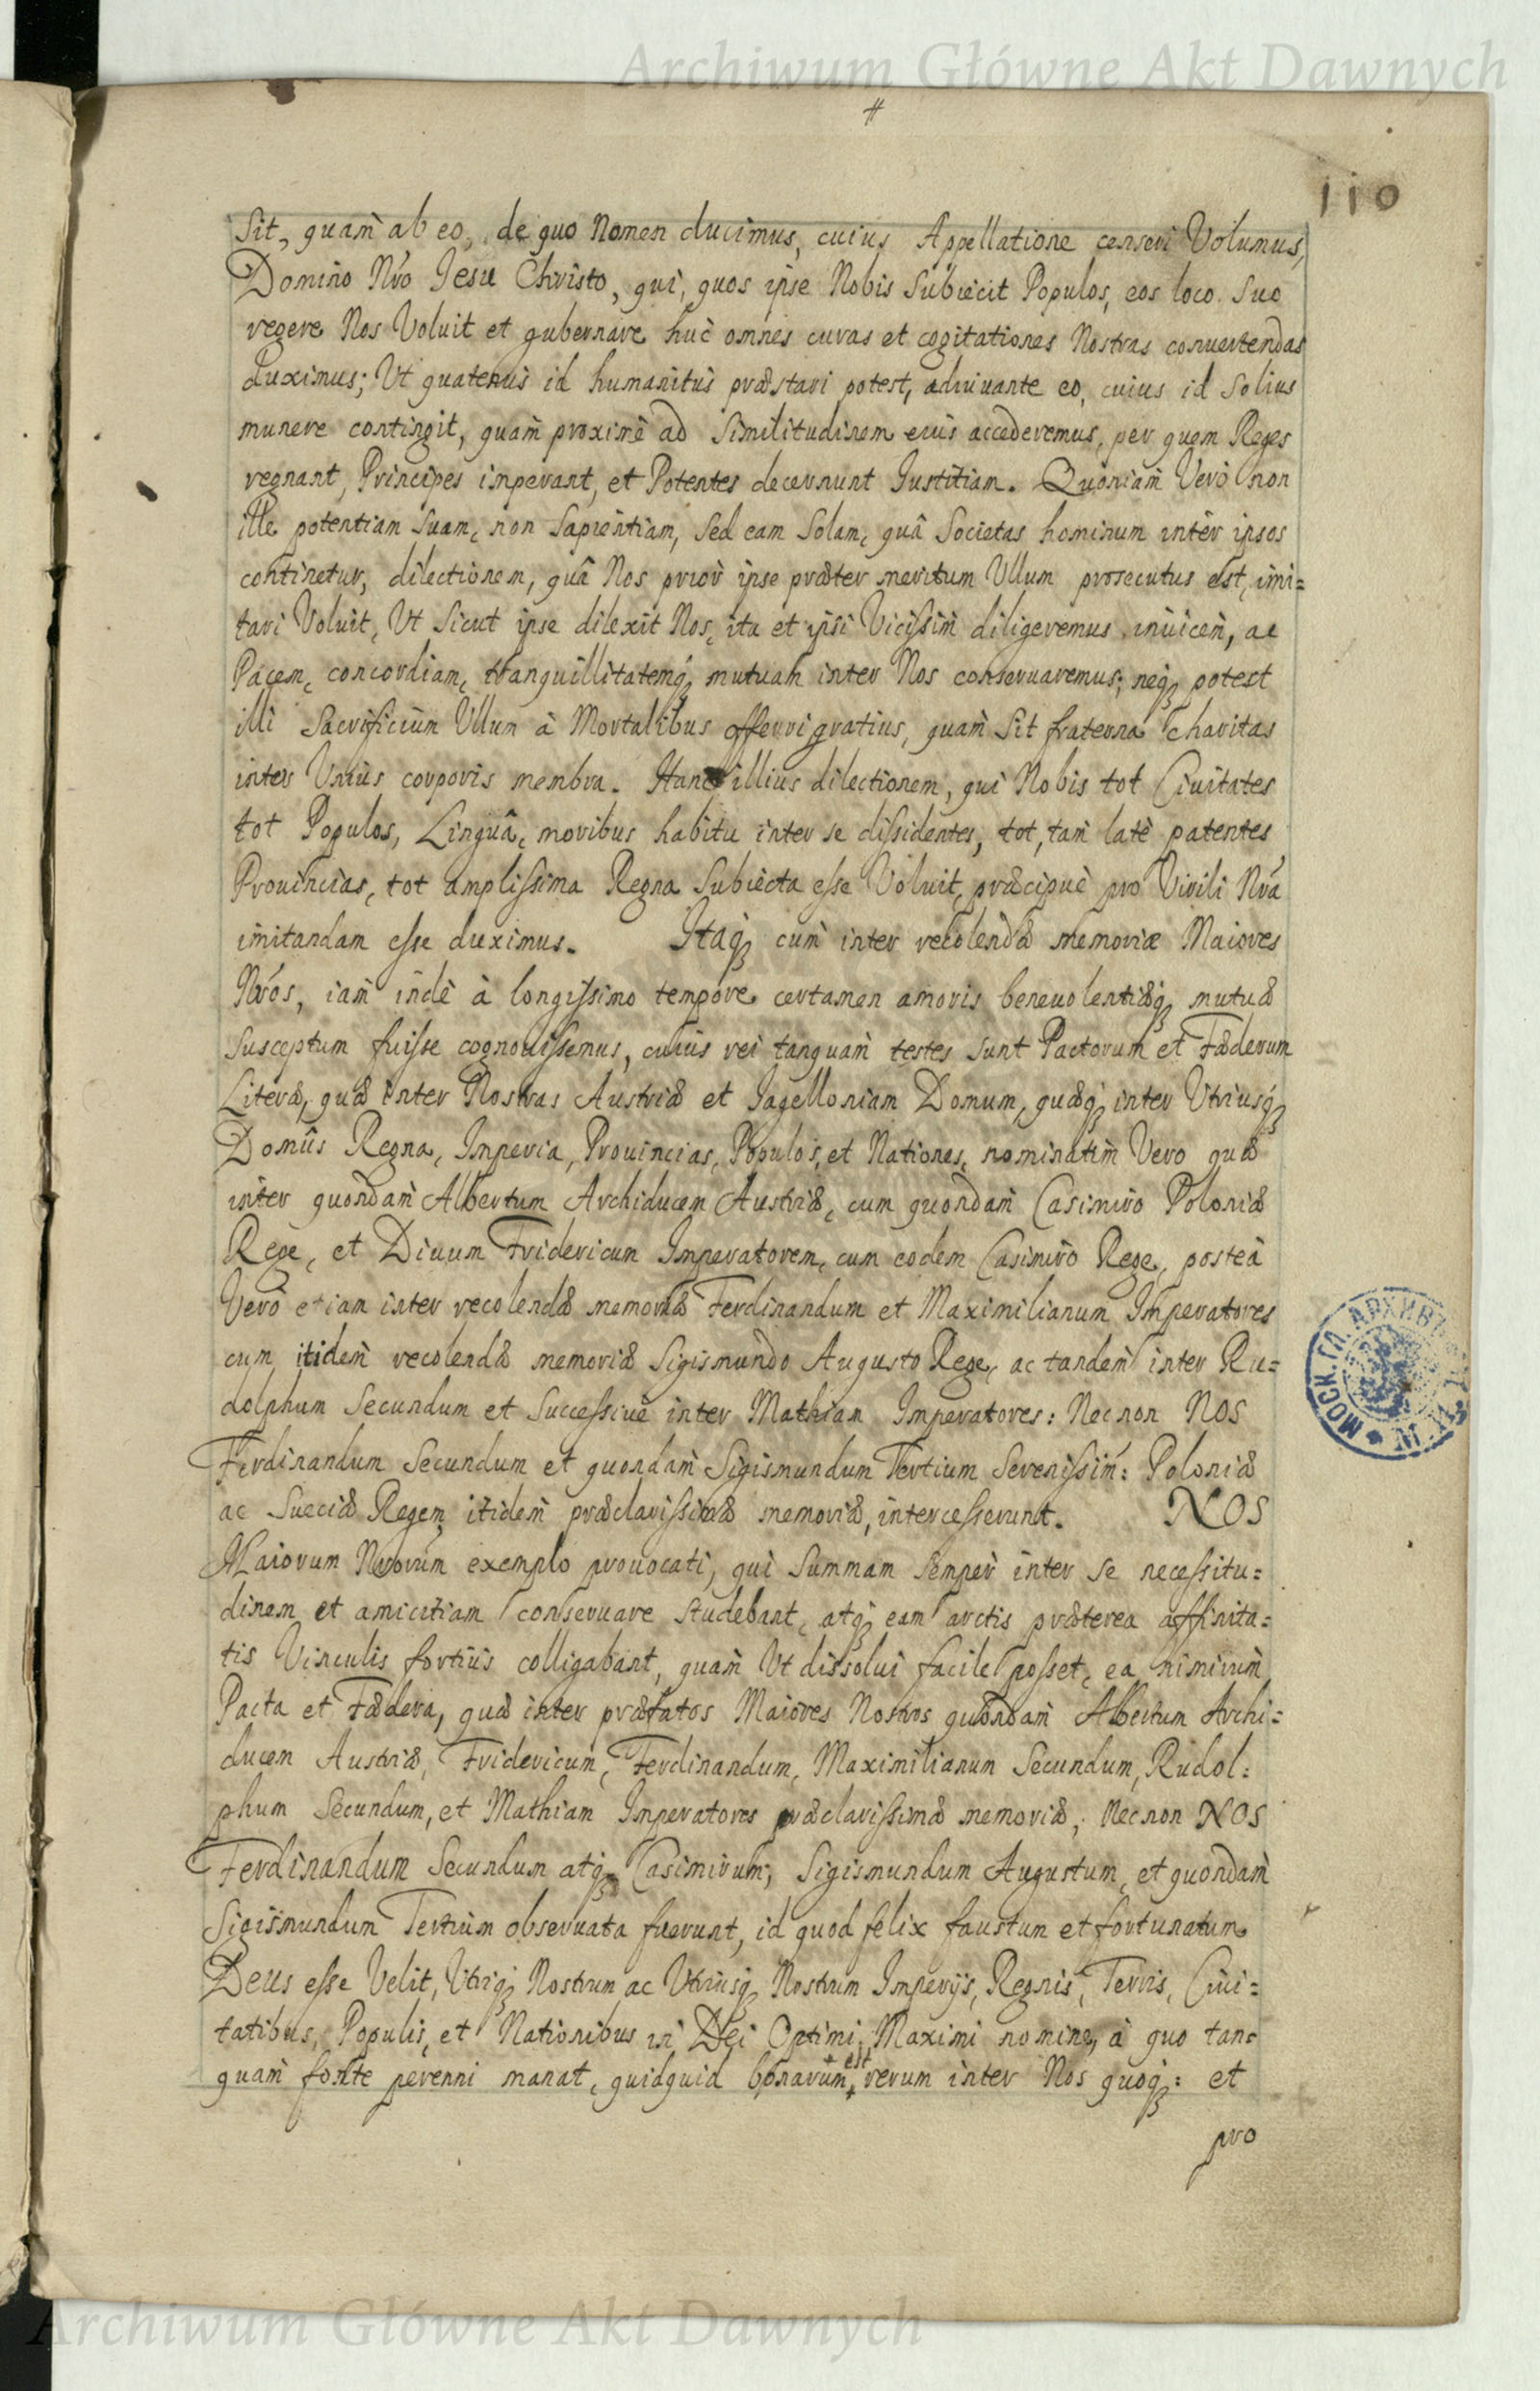 Archiwum Główne Akt Dawnych
#
110
Sit, quam̀ ab eo, de quo Nomen ducimus, cuius Appellatione censeri Volumus,
Domino Nr̃o Jesu Christo, qui, quos ipse Nobis Subiecit Populos, eos loco Suo
regere Nos Voluit et gubernare huc omnes curas et cogitationes Nostras conuertendas
duximus; Ut quatenus id humanitùs præstari potest, adiuuante eo, cuius id Solius
munere contingit, quam̀ proximè ad Similitudinem eius accederemus, per quem Reges
regnant, Principes imperant, et Potentes decernunt Justitiam. Quoniam̀ Verò non
ille potentiam Suam, non Sapientiam, Sed eam Solam, quâ Societas hominum intèr ipsos
continetur, dilectionem, quâ Nos prior ipse præter meritum Ullum prosecutus est, imi=
tari Voluit, Ut Sicut ipse dilexit Nos, ita et ipsi Vicissim̀ diligeremus inuicem̀, ac
Pacem, concordiam, tranquillitatemq́ mutuam inter Nos conseruaremus; neq́ potest
illi Sacrificium Ullum à Mortalibus offerri gratius, quam̀ Sit fraterna Charitas
inter Unius corporis membra. Hanc illius dilectionem, qui Nobis tot Ciuitates
tot Populos, Linguâ, moribus habitu inter se dissidentes, tot, tam̀ latè patentes
Prouincias, tot amplissima Regna Subiecta esse Voluit, præcipuè pro Virili Nr̃a
imitandam esse duximus. Itaq́ cum̀ inter recolendæ memoriæ Maiores
Nr̃os, iam̀ indè à longissimo tempore certamen amoris beneuolentiæq́ mutuæ
Susceptum fuisse cognouissemus, cuius rei tanquam̀ testes sunt Pactorum et Fæderum
Literæ, quæ inter Nostras Austriæ et Jagelloniam Domum, quæq́ inter Utriusq́
Domûs Regna, Imperia, Prouincias, Populos, et Nationes, nominatim̀ Vero quæ
inter quondam̀ Albertum Archiducem Austriæ, cum quondam̀ Casimiro Poloniæ
Rege, et Diuum Fridericum Imperatorem, cum eodem Casimiro Rege, posteà
Verò etiam inter recolendæ memoriæ Ferdinandum et Maximilianum Imperatores
cum itidem̀ recolendæ memoriæ Sigismundo Augusto Rege, ac tandem̀ inter Ru=
dolphum Secundum et Successiuè inter Mathiam Imperatores: Nec non NOS
Ferdinandum Secundum et quondam̀ Sigismundum Tertium Serenissim̃: Poloniæ
ac Sueciæ Regem itidem̀ præclarissimæ memoriæ, intercesserunt. NOS
Maiorum Nr̃orum exemplo prouocati, qui Summam Semper inter se necessitu=
dinem et amicitiam conseruare Studebant, atq́ eam arctis præterea affinita=
tis Vinculis fortiùs colligabant, quam̀ Ut dissolui facilè posset, ea nimirum̀
Pacta et Fædera, quæ inter præfatos Maiores Nostros quondam̀ Albertum Archi=
ducem Austriæ, Fridericum, Ferdinandum, Maximilianum Secundum, Rudol=
phum Secundum, et Mathiam Imperatores præclarissimæ memoriæ; Nec non NOS
Ferdinandum Secundum atq́ Casimirum, Sigismundum Augustum, et quondam̀
Sigismundum Tertium obseruata fuerunt, id quod felix faustum et fortunatum
Deus esse Velit, Utriq́ Nostrum ac Utriusq́ Nostrum Imperijs, Regnis, Terris, Ciui=
tatibus, Populis, et Nationibus in Dei Optimi Maximi nomine, à quo tan=
quam̀ fonte perenni manat, quidquid bonarum est rerum inter Nos quoq́: et
pro
МОСК. ГЛ. АРХИВЪ
Archiwum Główne Akt Dawnych